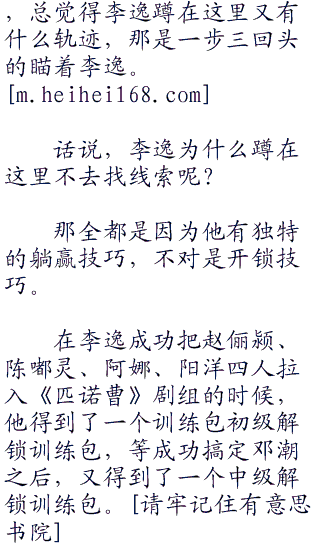 ，总觉得李逸蹲在这里又有
什么轨迹，那是一步三回头
的瞄着李逸。
[m.heihei168.com]
话说，李逸为什么蹲在
这里不去找线索呢？
那全都是因为他有独特
的躺赢技巧，不对是开锁技
巧。
在李逸成功把赵俪颍、
陈嘟灵、阿娜、阳洋四人拉
入《匹诺曹》剧组的时候，
他得到了一个训练包初级解
锁训练包，等成功搞定邓潮
之后，又得到了一个中级解
锁训练包。[请牢记住有意思
书院]